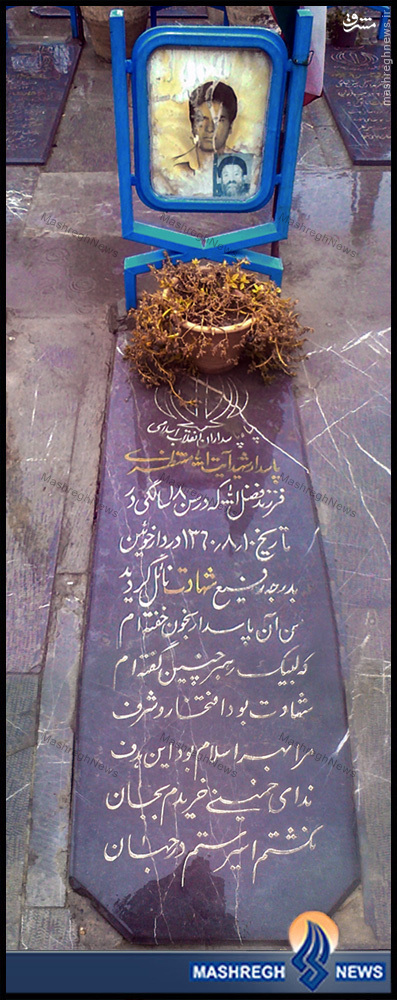 مشرق
mashreghnews.ir
سپاه پاسداران انقلاب اسلامی
پاسدار شهید آیت الله منتظری
فرزند فضل الله که در سن ۱۸ سالگی در
تاریخ ۱۳۶۰٫۸٫۱۰ در دارخوئین
بدرجه رفیع شهادت نائل گردید
من آن پاسدار بخون خفته ام
که لبیک رهبر چنین گفته ام
شهادت بود افتخار و شرف
مرا بهر اسلام بود این هدف
ندای خمینی خریدم بجان
نگشتم اسیر ستم در جهان
MASHREGH NEWS